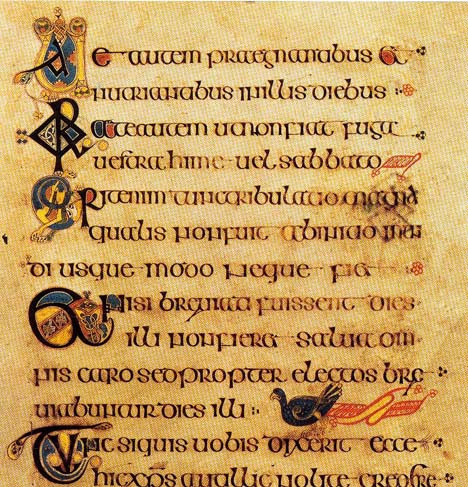 Uae autem praegnantibus et
nutriantibus in illis diebus
Orate autem ut non fiat fuga
uestra hime uel sabbato
Erit enim tunc tribulatio magna
qualis non fuit ab initio mun
di usque modo neque fiet
Et nisi breuiati fuissent dies
illi non fieret salua om
nis caro sed propter electos bre
uiabuntur dies illi
Tunc si quis uobis dixerit ecce
hic xps aut illic nolite credere